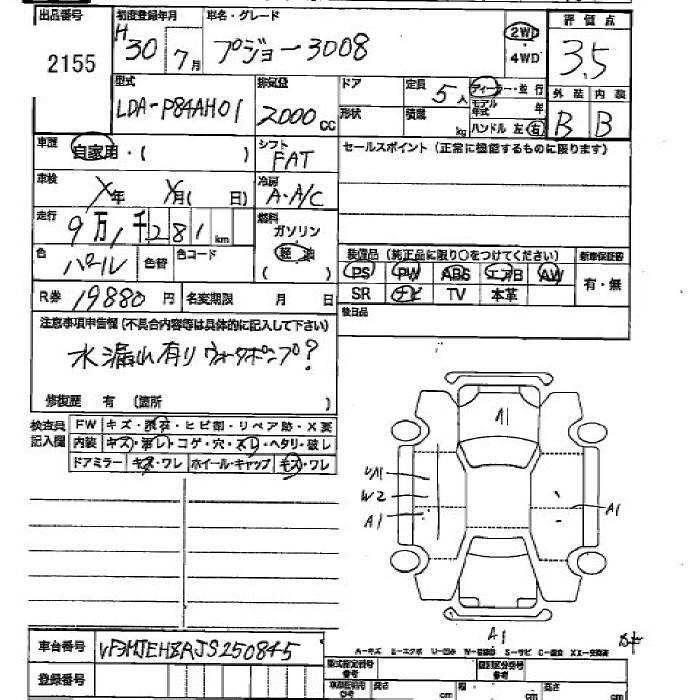 出品番号 初度登録年月 車名・グレード 評価点
2155 H30年7月 プジョー3008 2WD・4WD 3.5
型式 排気量 ドア 定員 5人 ディーラー・並行 外装 内装
LDA-P84AH01 2000cc 形状 積載 kg モデル年式 年 B B
ハンドル 左 右
車歴 自家用・( ) シフト FAT セールスポイント(正常に機能するものに限ります)
車検 X年 X月( 日) 冷房 A-A/C
走行 9万1千281km 燃料 ガソリン
色 パール 色替 色コード 軽油 ( ) 装備品(純正品に限り○をつけてください) 新車保証書
PS PW ABS エアB AW 有・無
R券 19880円 名変期限 月 日 SR ナビ TV 本革
後日品
注意事項申告欄(不具合内容等は具体的に記入して下さい)
水漏れ有り ウォーターポンプ?
修復歴 有 (箇所 )
検査員記入欄 FW キズ・・ヒビ割・リペア跡・X要
内装 キズ・・コゲ・穴・スレ・ヘタリ・破レ
ドアミラー キズ・ワレ ホイール・キャップ キズ・ワレ
A1
W2
A1
A1
A1
A-キズ E-エクボ U-凹み S-サビ C-腐食 XX-交換済
車台番号 VF3MJEHZRJS250845
登録番号
型式指定番号 参考 類別区分番号 参考
高さ cm 幅 cm 長さ cm